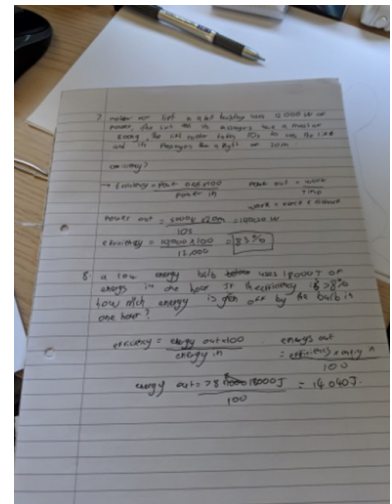 7. motor or lift a tall building uses 12000 W or
power, the lift and its passengers have a mass of
500kg, the lift motor takes 10s to
and its Passengers to a height of 20m.
efficiency?
→ Efficiency = Power out x100
power in
power out = work
time
work = force x distance
Power out = 5000 x 20m = 10000 W
10s
efficiency = 10000 x 100 = 83%
12,000
8. a low energy bulb uses 18000J of
energy in one hour. If the efficiency is 78%
how much energy is given off by the bulb in
one hour?
efficiency = energy out x100
energy in
energy out
= efficiency x energy in
100
energy out = 78 18000J = 14 040J.
100